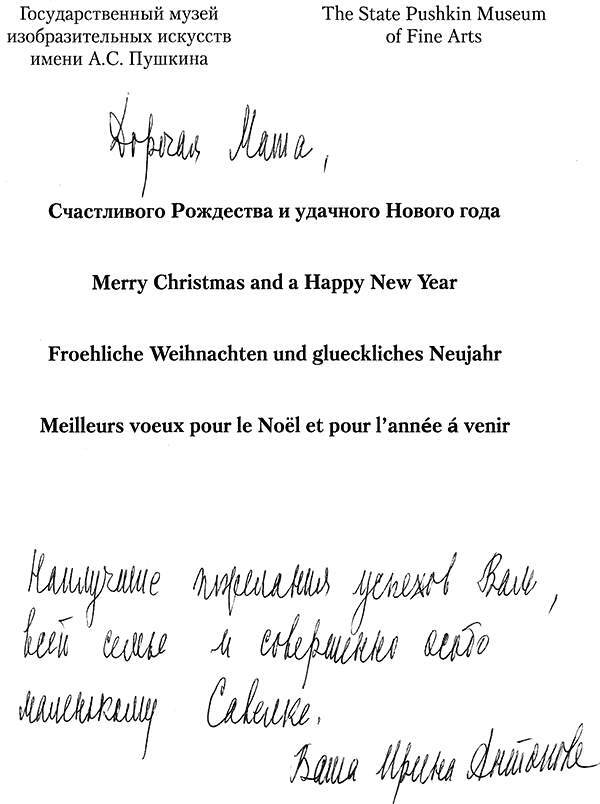 Государственный музей
изобразительных искусств
имени А.С. Пушкина
The State Pushkin Museum
of Fine Arts
Дорогая Маша,
Счастливого Рождества и удачного Нового года
Merry Christmas and a Happy New Year
Froehliche Weihnachten und glueckliches Neujahr
Meilleurs voeux pour le Noël et pour l'année á venir
Наилучшие пожелания успехов Вам,
всей семье и совершенно особо
маленькому Савелке.
Ваша Ирина Антонова